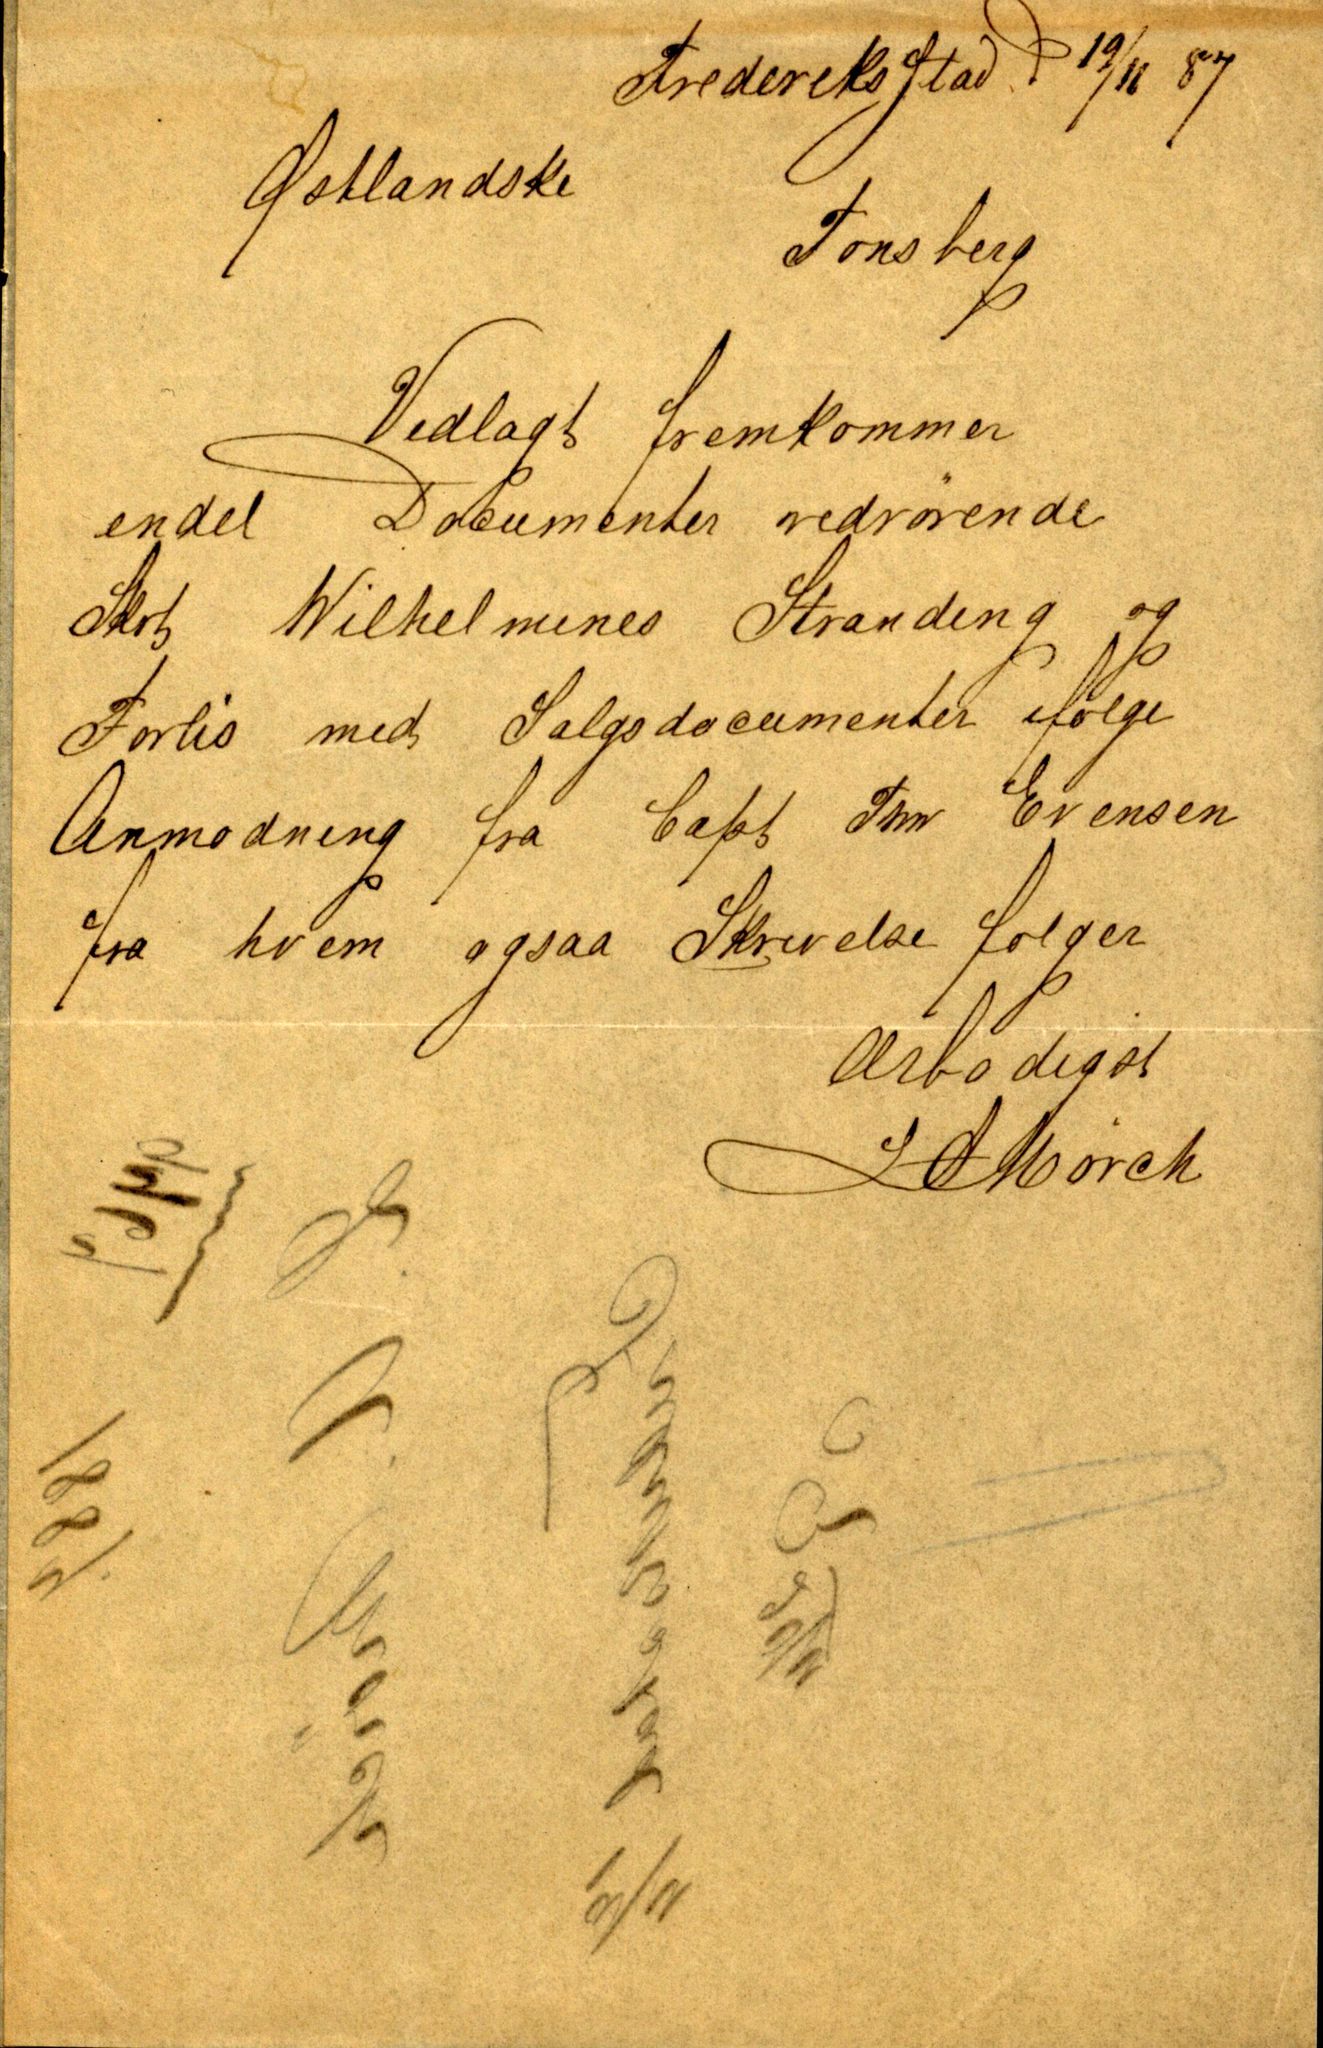 Frederiksstad d 19/11 87
Østlandske
Tonsberg
Vedlagt fremkommer
endel Documenter vedrörende
Skt Wilhelmines Stranding og
Forlis med Salgsdocumenter ifölge
Anmodning fra Capt Thv Evensen
fra hvem ogsaa Skrivelse folger
Ærbodigst
L A Mörch
1887.
L. A. Mörch